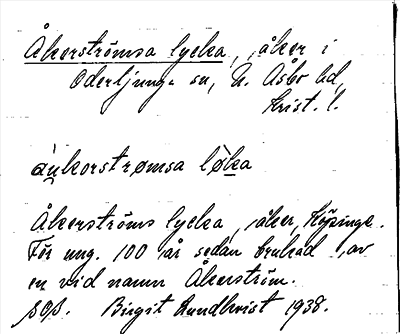 Åkerströmsa lycka, åker i
Oderljunga sn, N. Åsbo hd,
Krist. l.
åukorstrømsa løka
Åkerströms lycka, åker, Köpinge.
För ung. 100 år sedan brukad av
en vid namn Åkerström.
Birgit Rundkvist 1938.